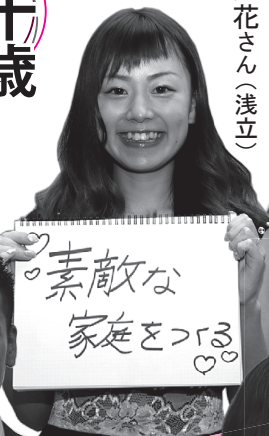 十歳
花さん（浅立）
素敵な
家庭をつくる